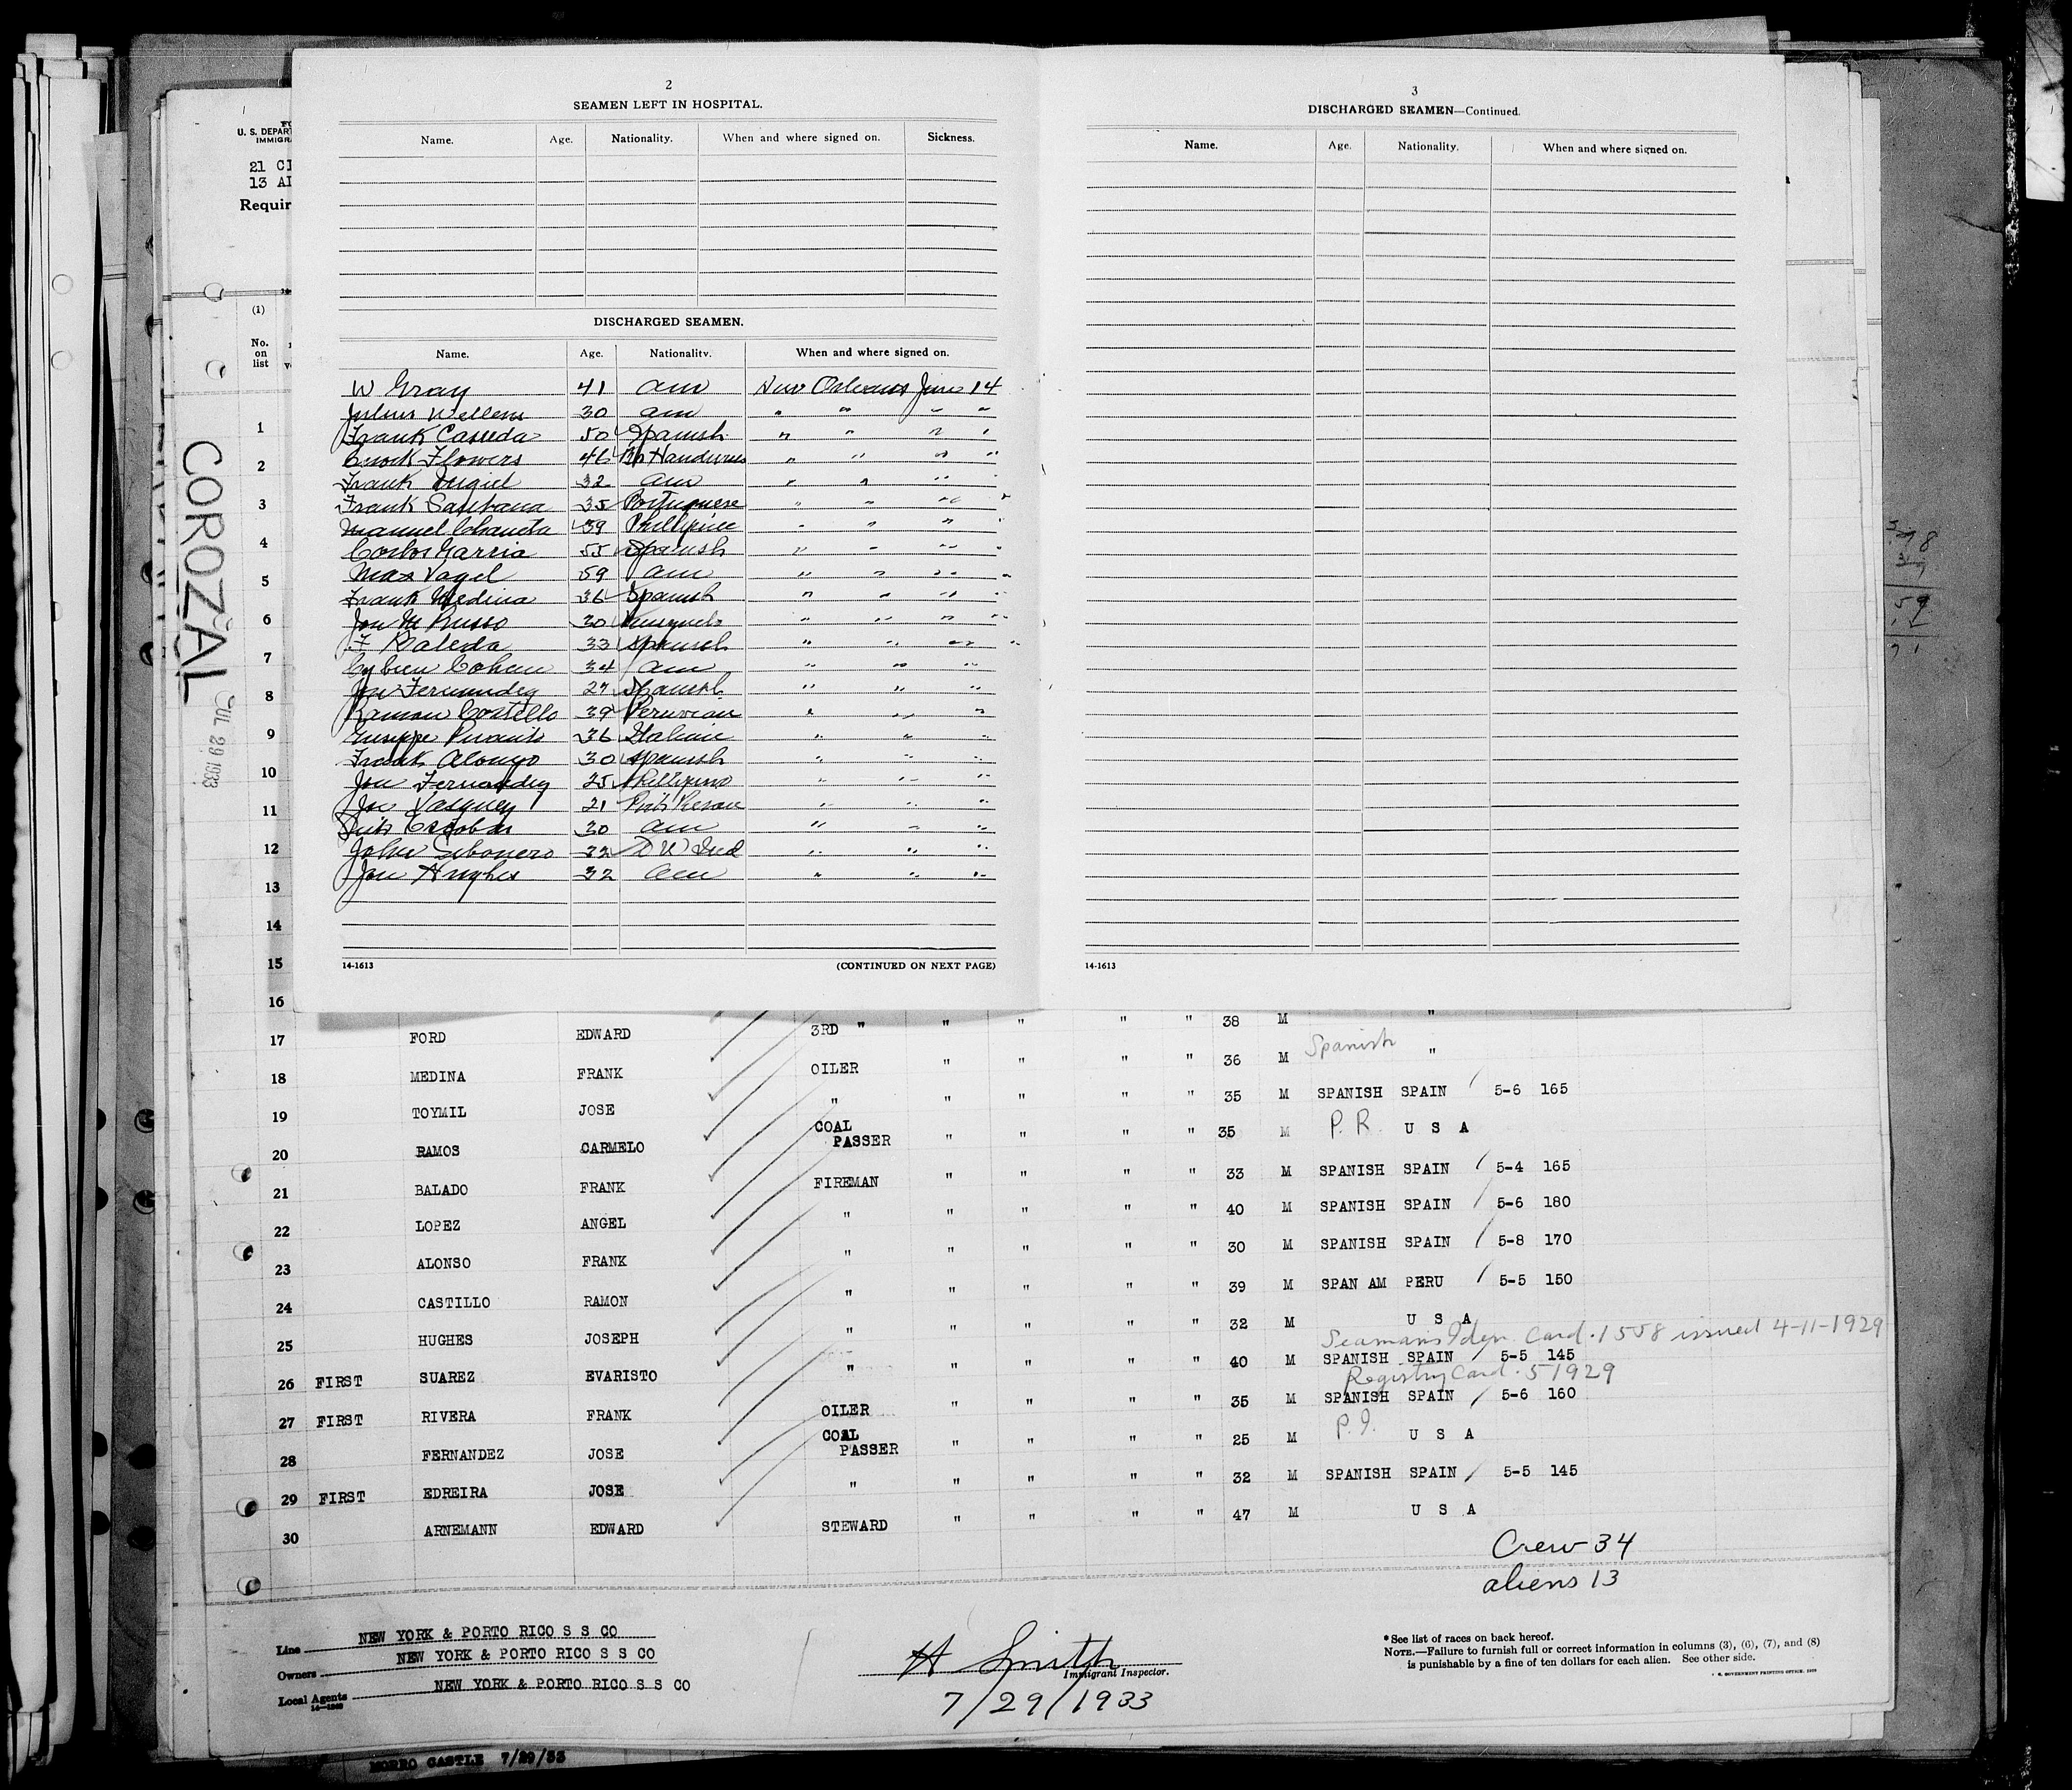 2
SEAMEN LEFT IN HOSPITAL.
Name. Age. Nationality. When and where signed on. Sickness.
DISCHARGED SEAMEN.
Name. Age. Nationality. When and where signed on.
W Gray 41 am New Orleans June 14
Julius Wellens 30 am " " " "
Frank Casseda 50 Spanish " " " "
Enock Flowers 46 Br Handuras " " " "
Frank 32 am " " " "
Frank Santana 35 Portuguese " " " "
Manuel 39 Phillipine " " " "
Carlos Garcia 55 Spanish " " " "
Max Vagel 59 am " " " "
Frank Medina 36 Spanish " " " "
Jou M Russo 30 " " " "
F Baleda 33 Spanish " " " "
Cohen 34 am " " "
Jou Fernandez 27 Spanish " " "
Ramon Costello 39 Peruvian " " "
36 Italian " " "
Frank Alonzo 30 Spanish " " "
Jou Fernandez 25 Phillipino " " "
Jou Vasquez 21 " " "
Escobar 30 am " " "
John 32 D W Ind " " "
Jou Hughes 32 am " " "
14-1613 (CONTINUED ON NEXT PAGE)
3
DISCHARGED SEAMEN—Continued.
Name. Age. Nationality. When and where signed on.
14-1613
U. S. DEPAR
IMMIGRA
21 CI
13 AL
Requir
(1)
No. on list
COROZAL
JUL 29 1933
1
2
3
4
5
6
7
8
9
10
11
12
13
14
15
16
17 FORD EDWARD 3RD " " " " " 38 M "
18 MEDINA FRANK OILER " " " " 36 M Spanish "
19 TOYMIL JOSE " " " " " 35 M SPANISH SPAIN 5-6 165
20 RAMOS CARMELO COAL PASSER " " " " 35 M P. R. U S A
21 BALADO FRANK FIREMAN " " " " 33 M SPANISH SPAIN 5-4 165
22 LOPEZ ANGEL " " " " " 40 M SPANISH SPAIN 5-6 180
23 ALONSO FRANK " " " " " 30 M SPANISH SPAIN 5-8 170
24 CASTILLO RAMON " " " " " 39 M SPAN AM PERU 5-5 150
25 HUGHES JOSEPH " " " " " 32 M U S A
Seamans Iden Card. 1558 issued 4-11-1929
26 FIRST SUAREZ EVARISTO " " " " " 40 M SPANISH SPAIN 5-5 145
Registry Card. 51929
27 FIRST RIVERA FRANK OILER " " " " 35 M SPANISH SPAIN 5-6 160
28 FERNANDEZ JOSE COAL PASSER " " " " 25 M P. I. U S A
29 FIRST EDREIRA JOSE " " " " " 32 M SPANISH SPAIN 5-5 145
30 ARNEMANN EDWARD STEWARD " " " " 47 M U S A
Crew 34
aliens 13
Line NEW YORK & PORTO RICO S S CO
Owners NEW YORK & PORTO RICO S S CO
Local Agents NEW YORK & PORTO RICO S S CO
H Smith
Immigrant Inspector.
7/29/1933
* See list of races on back hereof.
NOTE.—Failure to furnish full or correct information in columns (3), (6), (7), and (8)
is punishable by a fine of ten dollars for each alien. See other side.
MORRO CASTLE 7/29/33